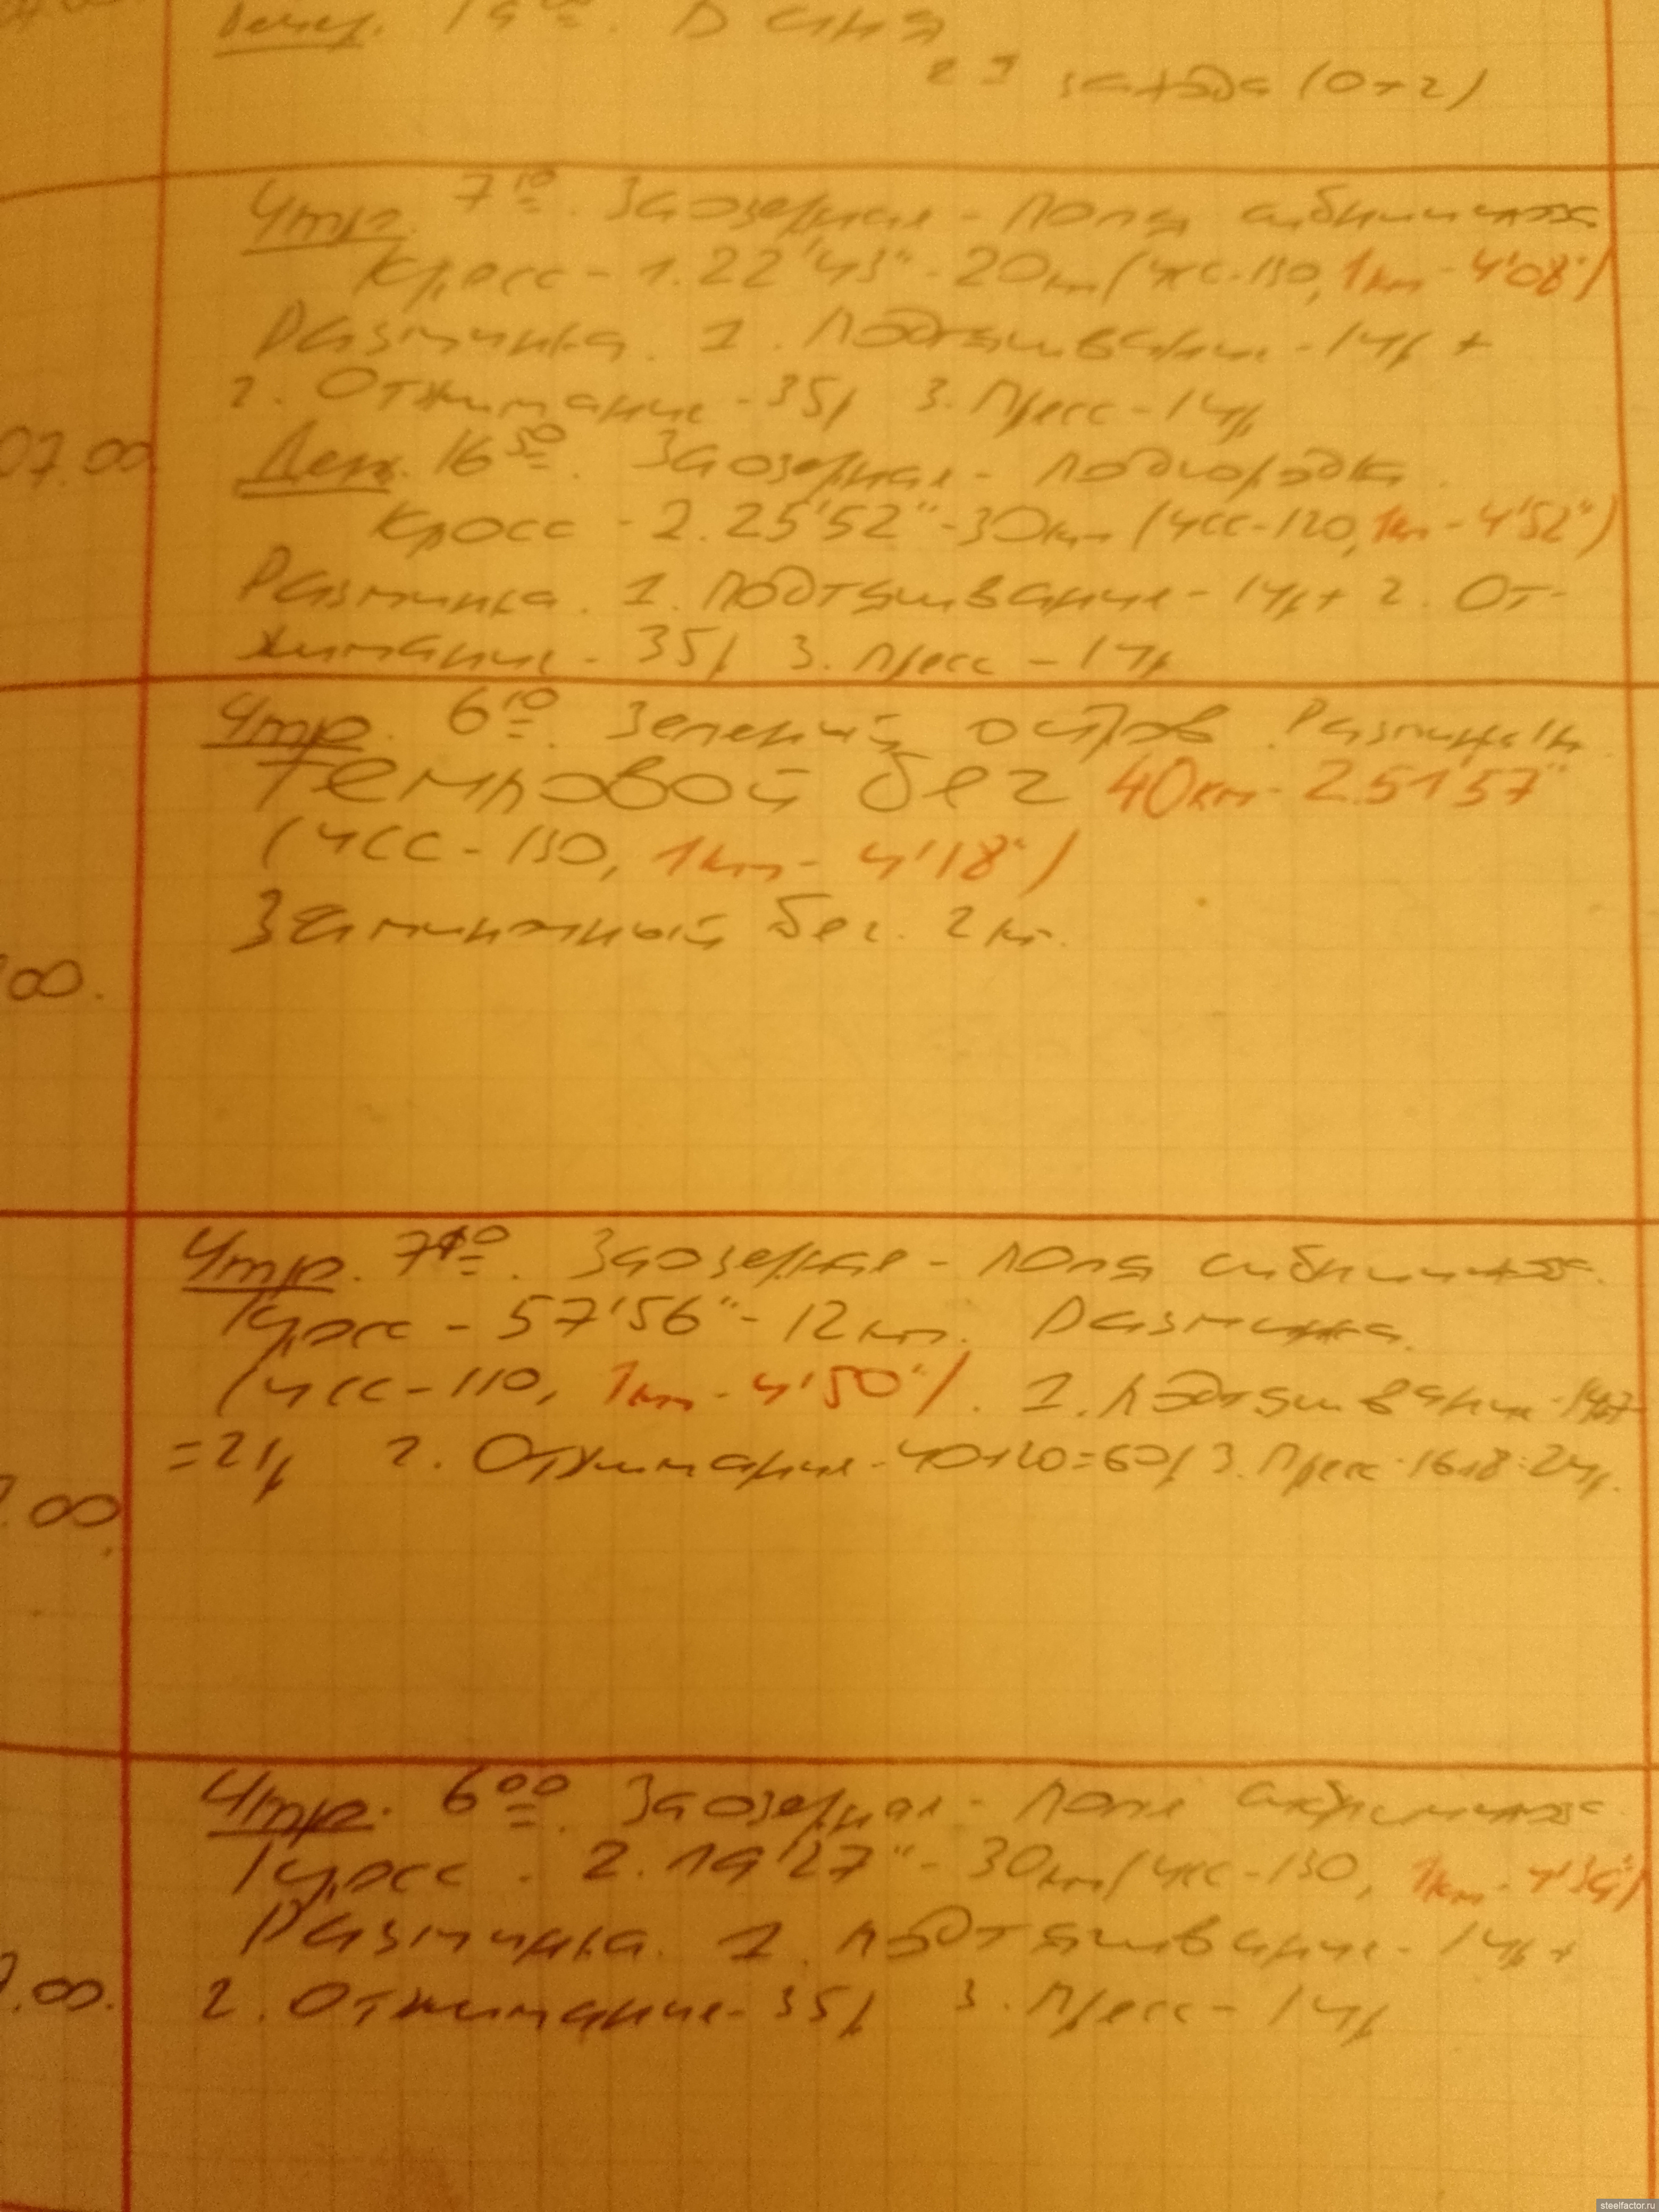 Вечер. 19⁰⁰. Баня
2 захода (0+2)
Утро. 7¹⁰. Заозерная - поля
Кросс - 1.22'43" - 20км (чсс-130, 1км - 4'08")
Разминка. 1. Подтягивание - 14р +
2. Отжимание - 35р 3. Пресс - 14р
07.00
День. 16⁵⁰. Заозерная - Подгородка.
Кросс - 2.25'52" - 30км (чсс-120, 1км - 4'52")
Разминка. 1. Подтягивание - 14р + 2. От-
жимание - 35р 3. Пресс - 14р
Утро. 6¹⁰. Зеленый остров.
Темповой бег 40км - 2.51'57"
(чсс - 130, 1км - 4'18")
Заминочный бег. 2км.
00.
Утро. 7¹⁰. Заозерная - поля
Кросс - 57'56" - 12км. Разминка.
(чсс - 110, 1км - 4'50"). 1. Подтягивание - 14+7
=21р 2. Отжимание - 40+20=60р 3. Пресс - 16+8=24р.
.00.
Утро. 6⁰⁰. Заозерная - поля
Кросс - 2.19'27" - 30км (чсс - 130, 1км - 4'39")
Разминка. 1. Подтягивание - 14р +
.00.
2. Отжимание - 35р 3. Пресс - 14р
steelfactor.ru